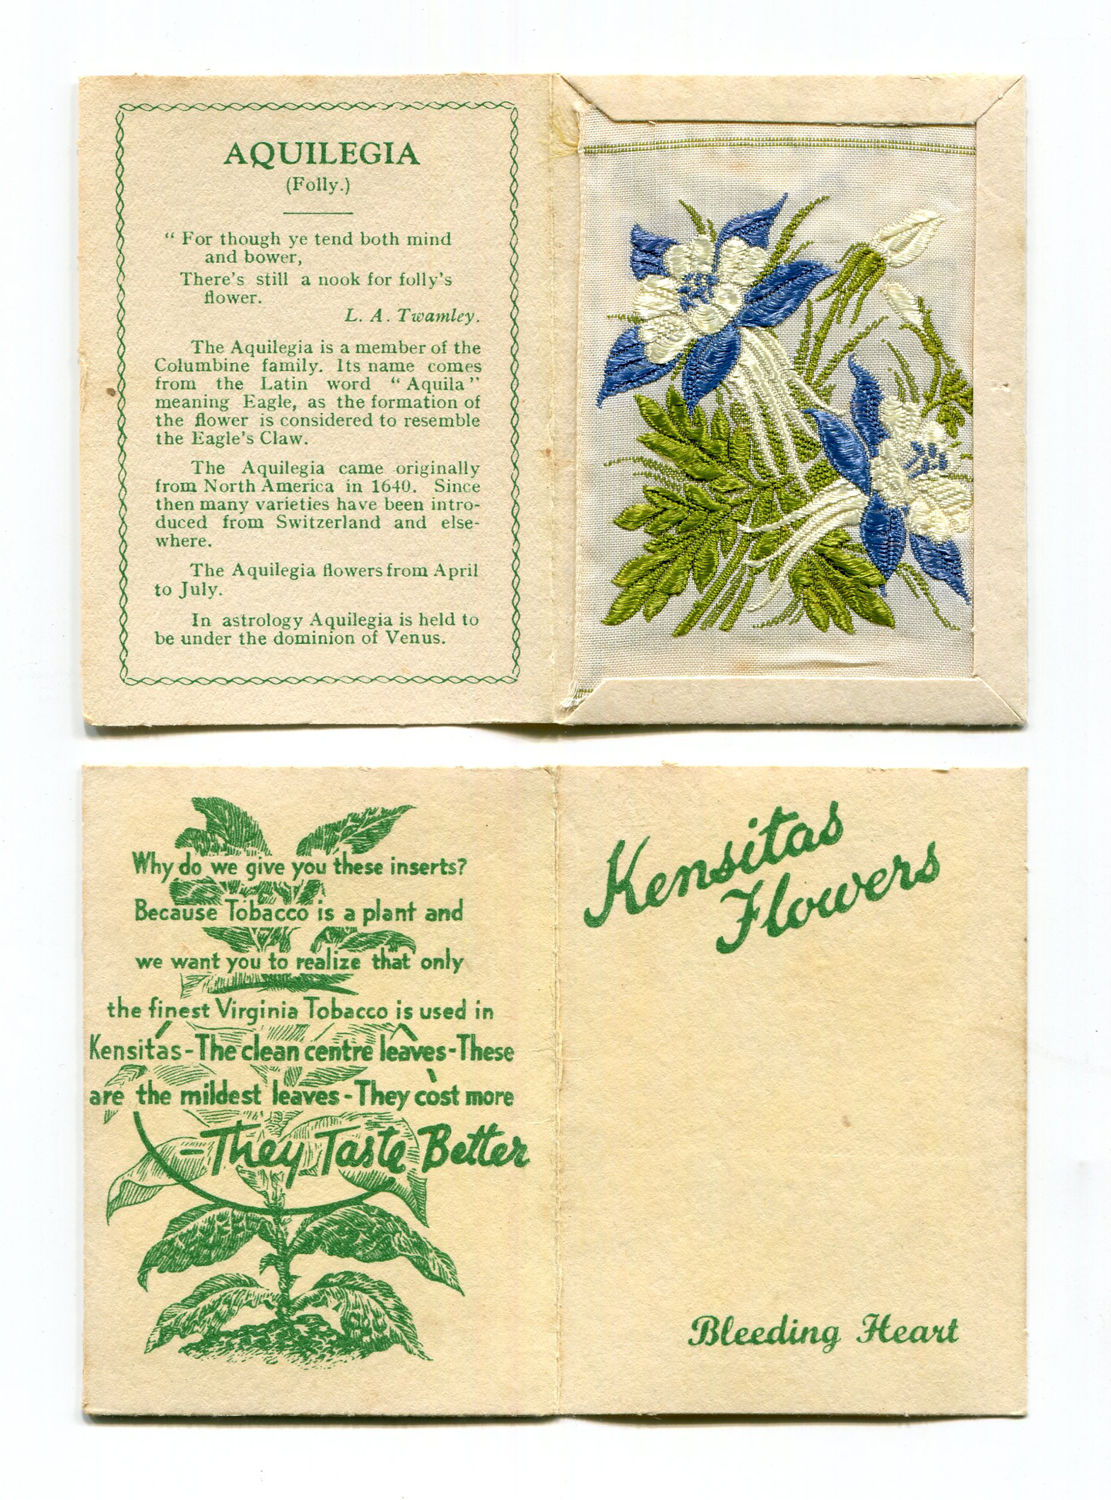 AQUILEGIA
(Folly.)
“ For though ye tend both mind
and bower,
There's still a nook for folly's
flower.
L. A. Twamley.
The Aquilegia is a member of the
Columbine family. Its name comes
from the Latin word “ Aquila ”
meaning Eagle, as the formation of
the flower is considered to resemble
the Eagle's Claw.
The Aquilegia came originally
from North America in 1640. Since
then many varieties have been intro-
duced from Switzerland and else-
where.
The Aquilegia flowers from April
to July.
In astrology Aquilegia is held to
be under the dominion of Venus.
Why do we give you these inserts?
Because Tobacco is a plant and
we want you to realize that only
the finest Virginia Tobacco is used in
Kensitas - The clean centre leaves - These
are the mildest leaves - They cost more
- They Taste Better
Kensitas
Flowers
Bleeding Heart